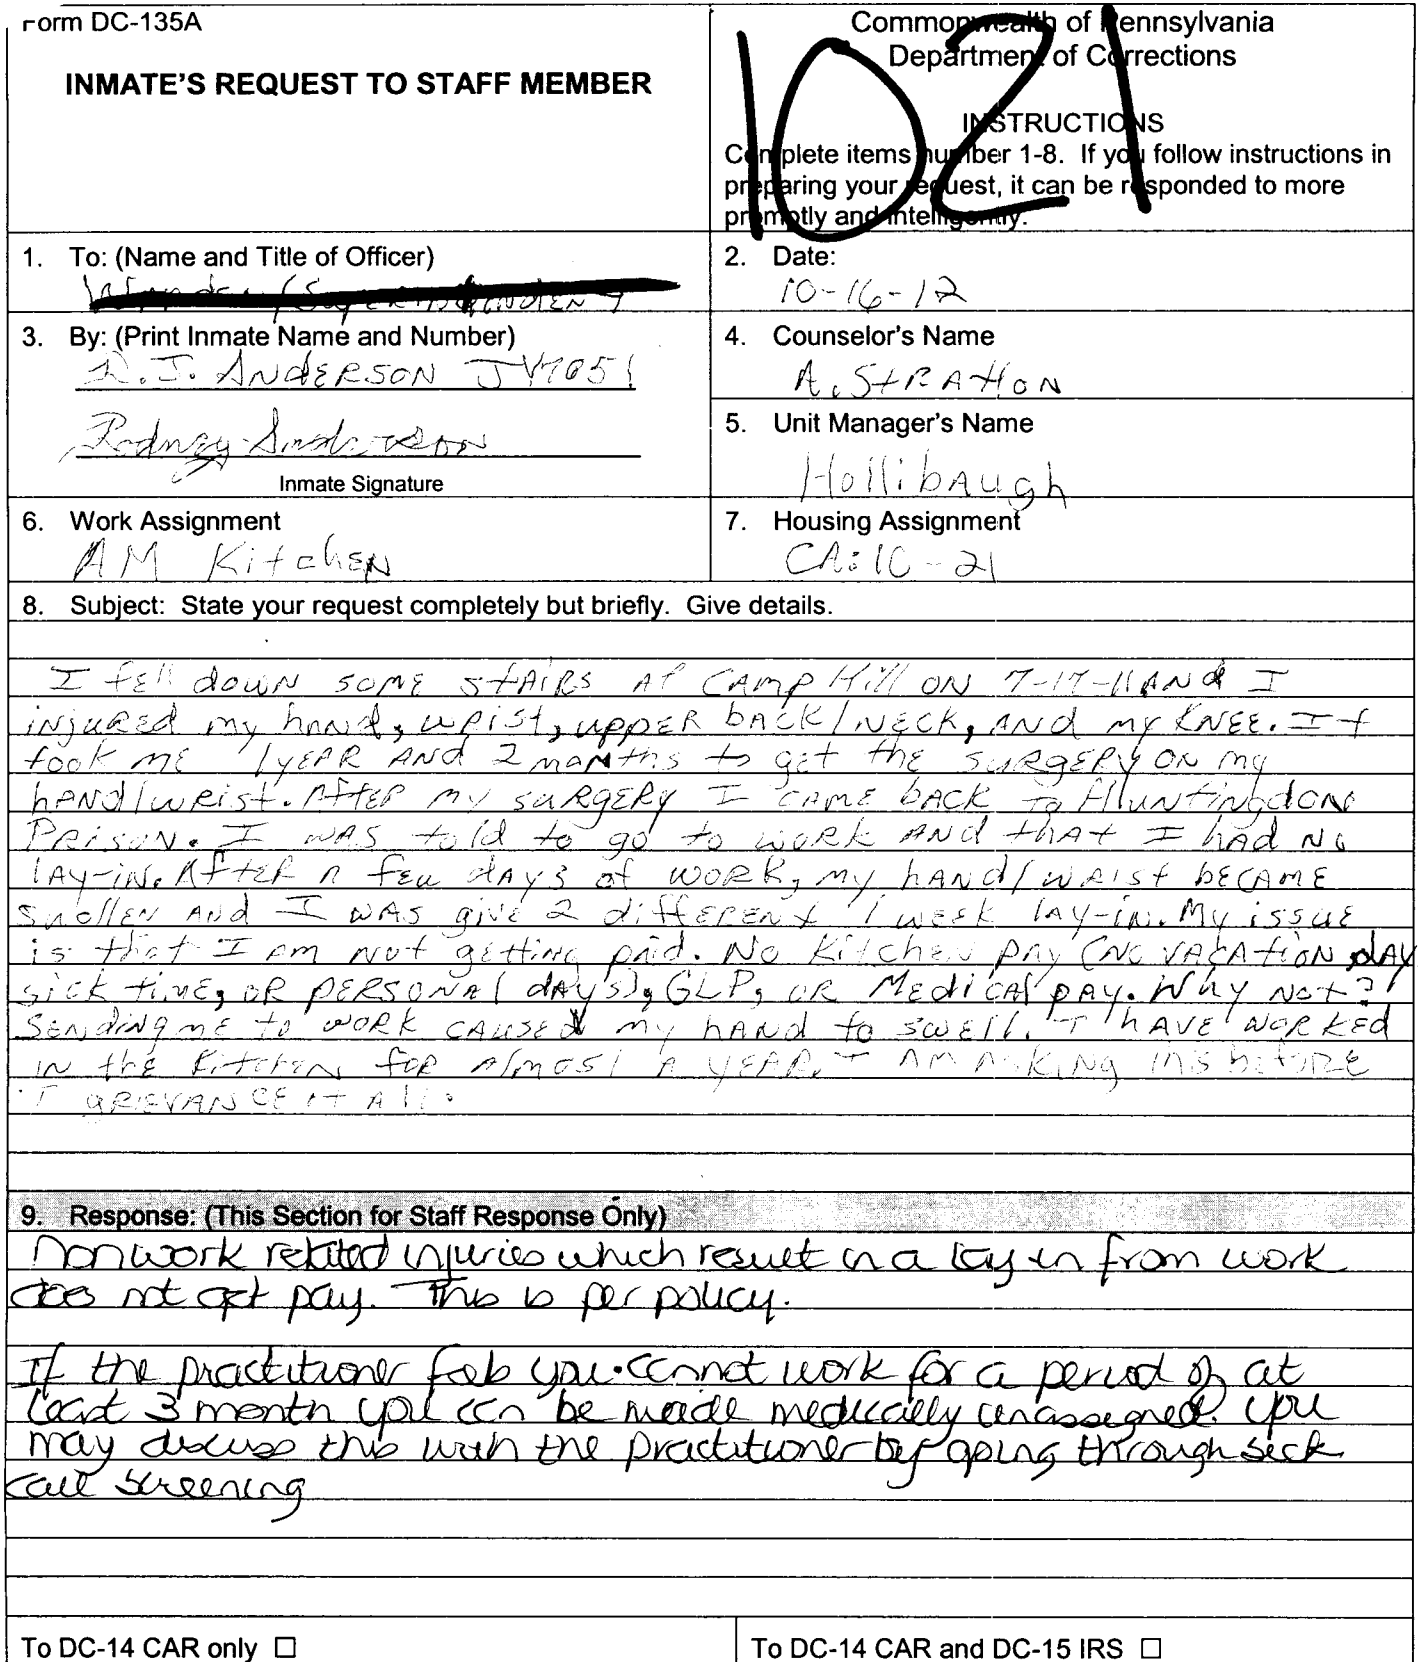 Form DC-135A
INMATE'S REQUEST TO STAFF MEMBER
Commonwealth of Pennsylvania
Department of Corrections
1021
INSTRUCTIONS
Complete items number 1-8. If you follow instructions in
preparing your request, it can be responded to more
promptly and intelligently.
1. To: (Name and Title of Officer)
2. Date:
10-16-12
3. By: (Print Inmate Name and Number)
R.J. ANdERSON JY7051
Rodney Anderson
Inmate Signature
4. Counselor's Name
A. StRAttoN
5. Unit Manager's Name
HollibAugh
6. Work Assignment
AM KitchEN
7. Housing Assignment
CA: 1C-21
8. Subject: State your request completely but briefly. Give details.
I fell down some stAIRS At CAmp Hill ON 7-17-11 ANd I
injured my hand, wrist, upper bAck/Neck, ANd my KNEE. It
took me 1 yEAR ANd 2 months to get the surgERy ON my
hANd/wRist. After my suRgERy I cAme bAck to HuntingdoN
PRisoN. I wAs told to go to work ANd thAt I hAd No
lAy-in. After a few dAys of work, my hANd/wRist becAme
swollEN ANd I wAs give 2 differENt 1 wEEk lAy-in. My issue
is that I am not getting paid. No KitcheN pAy (No vAcAtioN dAy
sick time, or pERsoNAl dAys), GLP, or MedicAl pAy. Why Not?
SeNding me to work cAused my hAnd to swell. I hAve worked
in the KitcheN for Almost A yEAR. I Am Asking this before
I gRIEVANCE it All.
9. Response: (This Section for Staff Response Only)
Non work related injuries which result in a lay in from work
does not get pay. This is per policy.
If the practitioner feels you cannot work for a period of at
least 3 month you can be made medically unassigned. you
may discuss this with the practitioner by going through sick
call screening
To DC-14 CAR only ☐
To DC-14 CAR and DC-15 IRS ☐